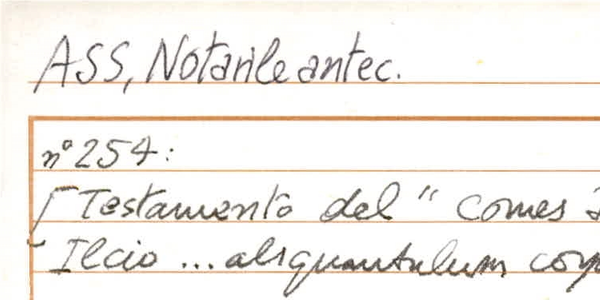 ASS, Notarile antec.
n° 254:
Testamento del "comes
Ilcio ... aliquantulum corp